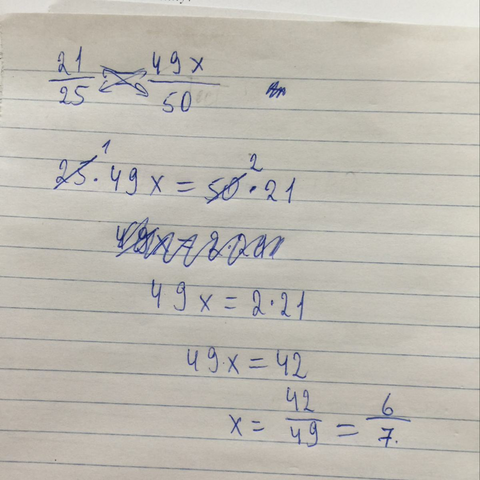 21/25 = 49x/50
25¹ · 49x = 50² · 21
49x = 2·21
49·x = 42
x = 42/49 = 6/7.